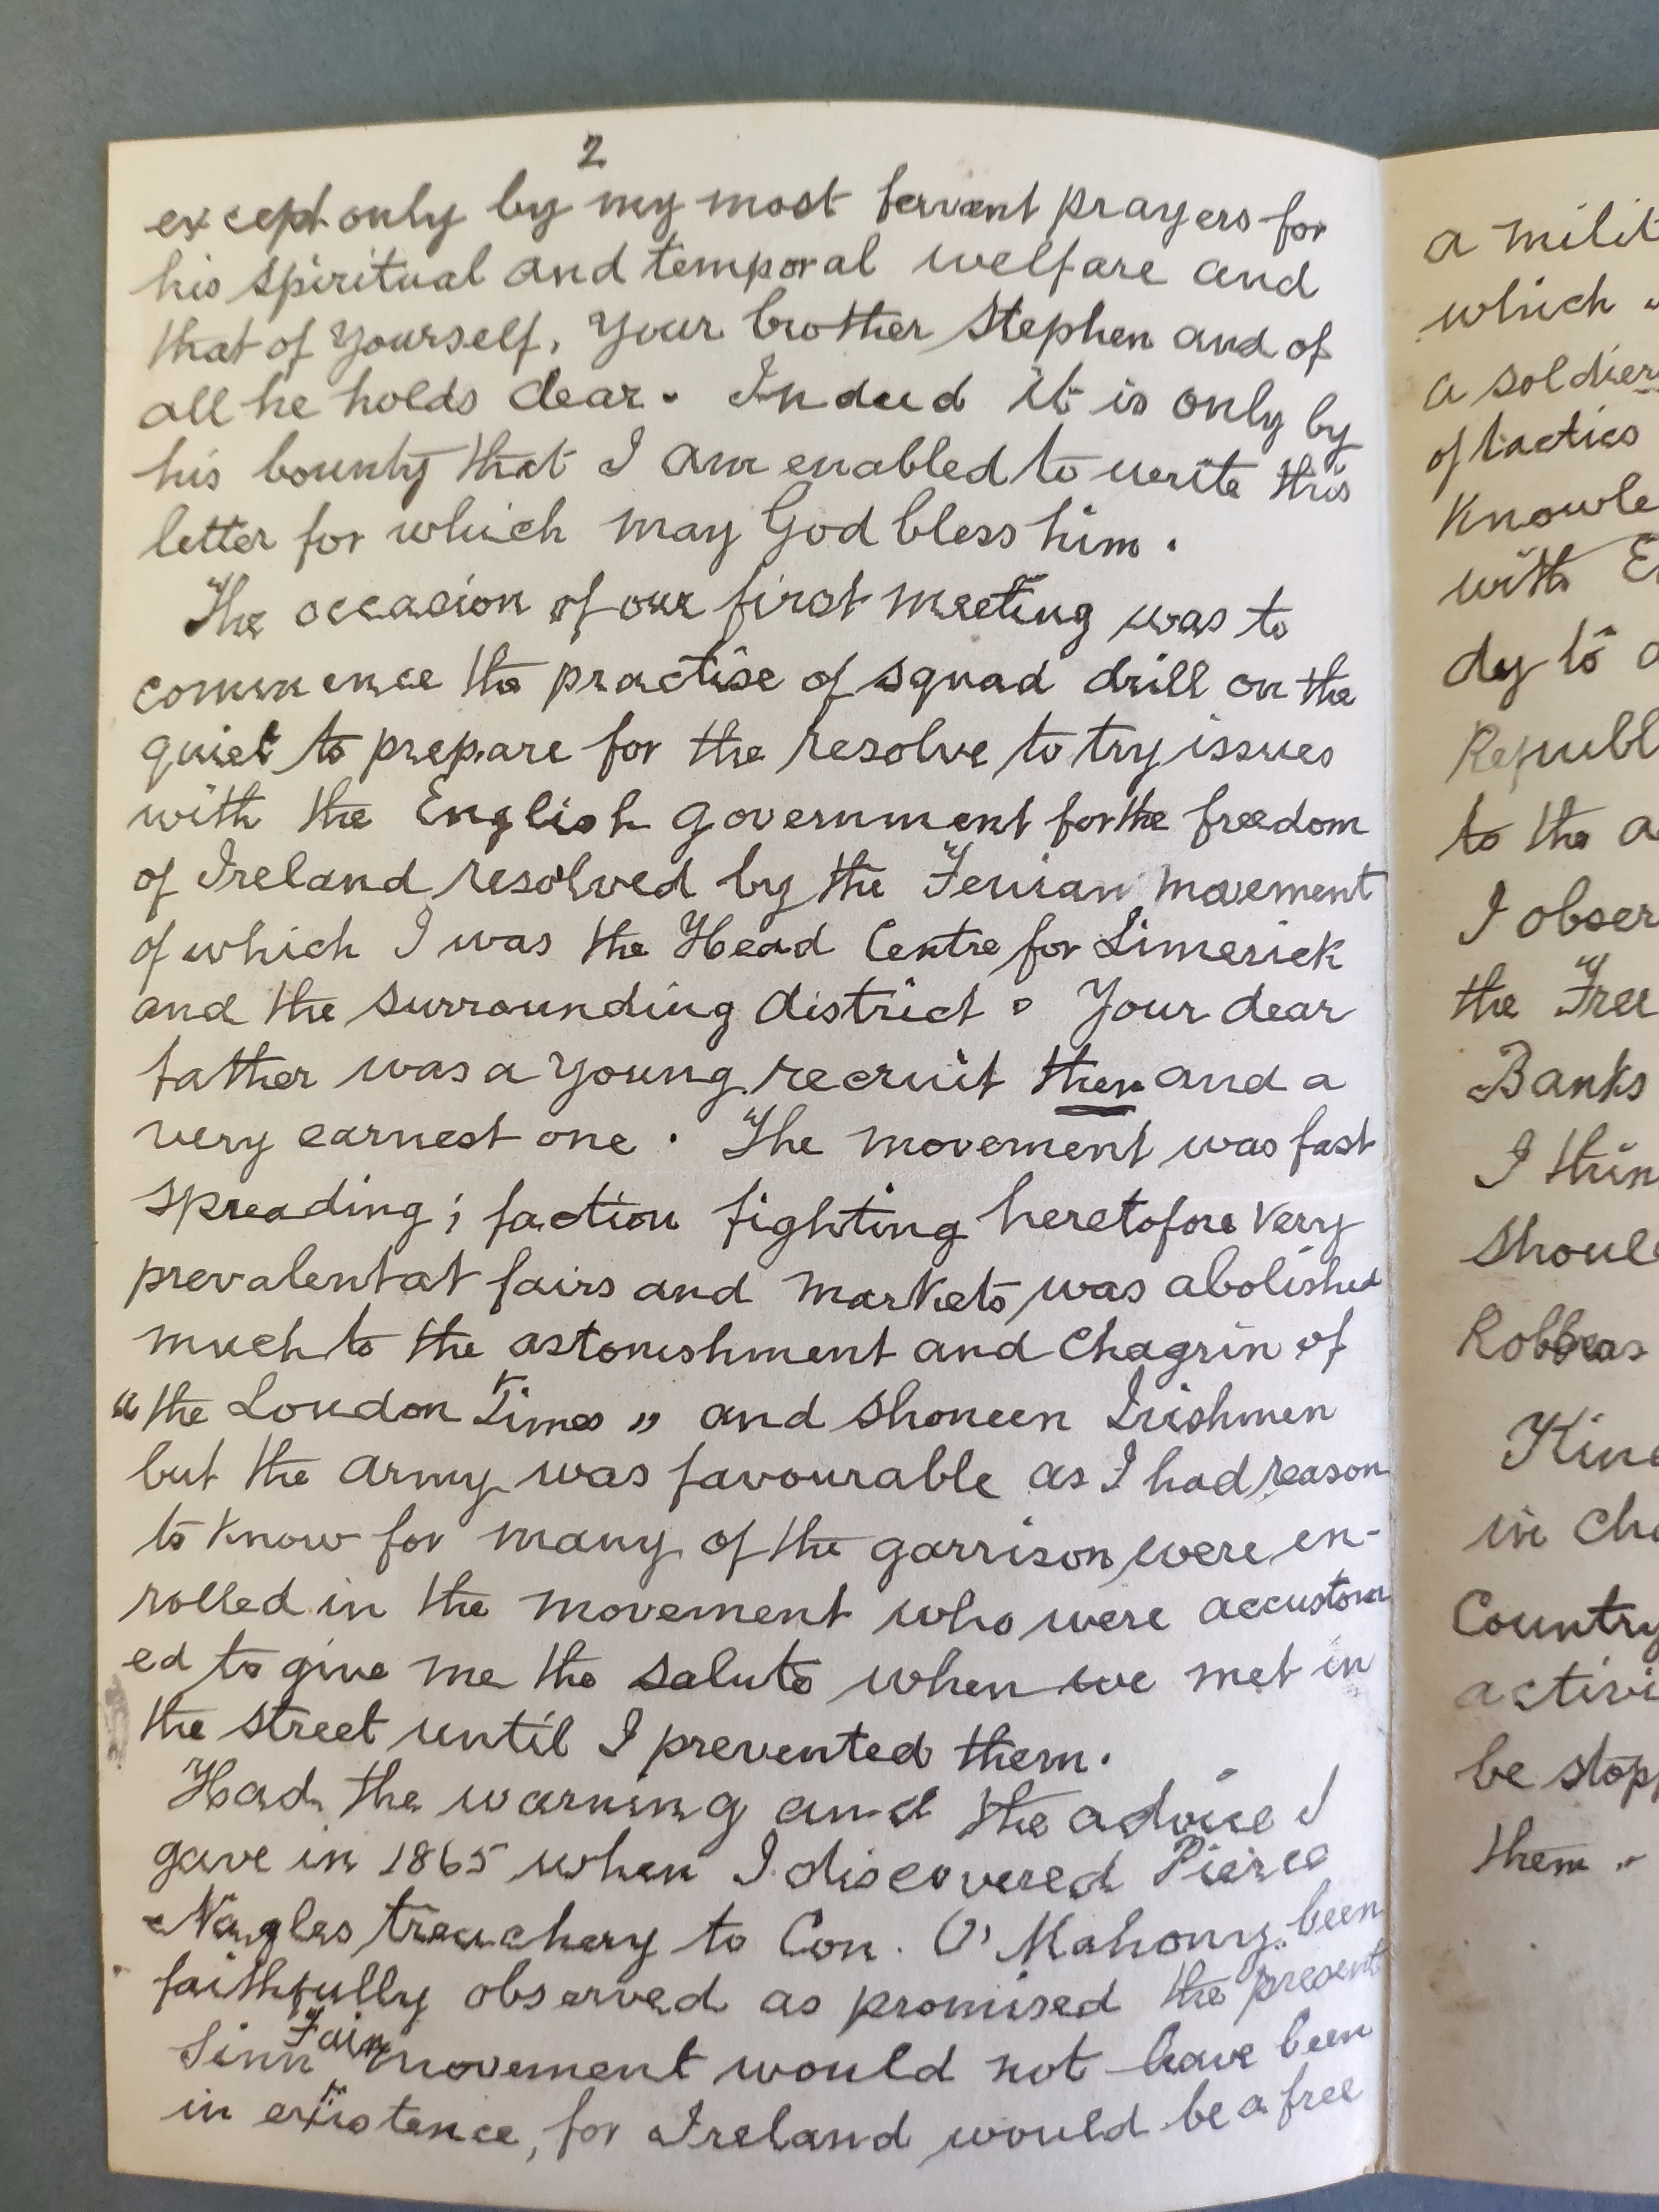 2
except only by my most fervent prayers for
his spiritual and temporal welfare and
that of yourself, your brother Stephen and of
all he holds dear. Indeed it is only by
his bounty that I am enabled to write this
letter for which may God bless him.
The occasion of our first meeting was to
commence the practise of squad drill on the
quiet to prepare for the resolve to try issues
with the English government for the freedom
of Ireland resolved by the Fenian movement
of which I was the Head Centre for Limerick
and the surrounding district. Your dear
father was a young recruit then and a
very earnest one. The movement was fast
spreading; faction fighting heretofore very
prevalent at fairs and markets was abolished
much to the astonishment and chagrin of
"the London Times" and shoneen Irishmen
but the army was favourable as I had reason
to know for many of the garrison were en-
rolled in the movement who were accustom
ed to give me the salute when we met in
the street until I prevented them.
Had the warning and the advice I
gave in 1865 when I discovered Pierce
Nagles treachery to Con. O'Mahony been
faithfully observed as promised the present
Sinn Fain movement would not have been
in existence, for Ireland would be a free
a milit
which
a soldier
of tactics
Knowle
with E
dy to a
Republ
to the a
I obser
the Free
Banks
I thin
Shoul
Robbers
Kin
in ch
Country
activi
be stop
them.